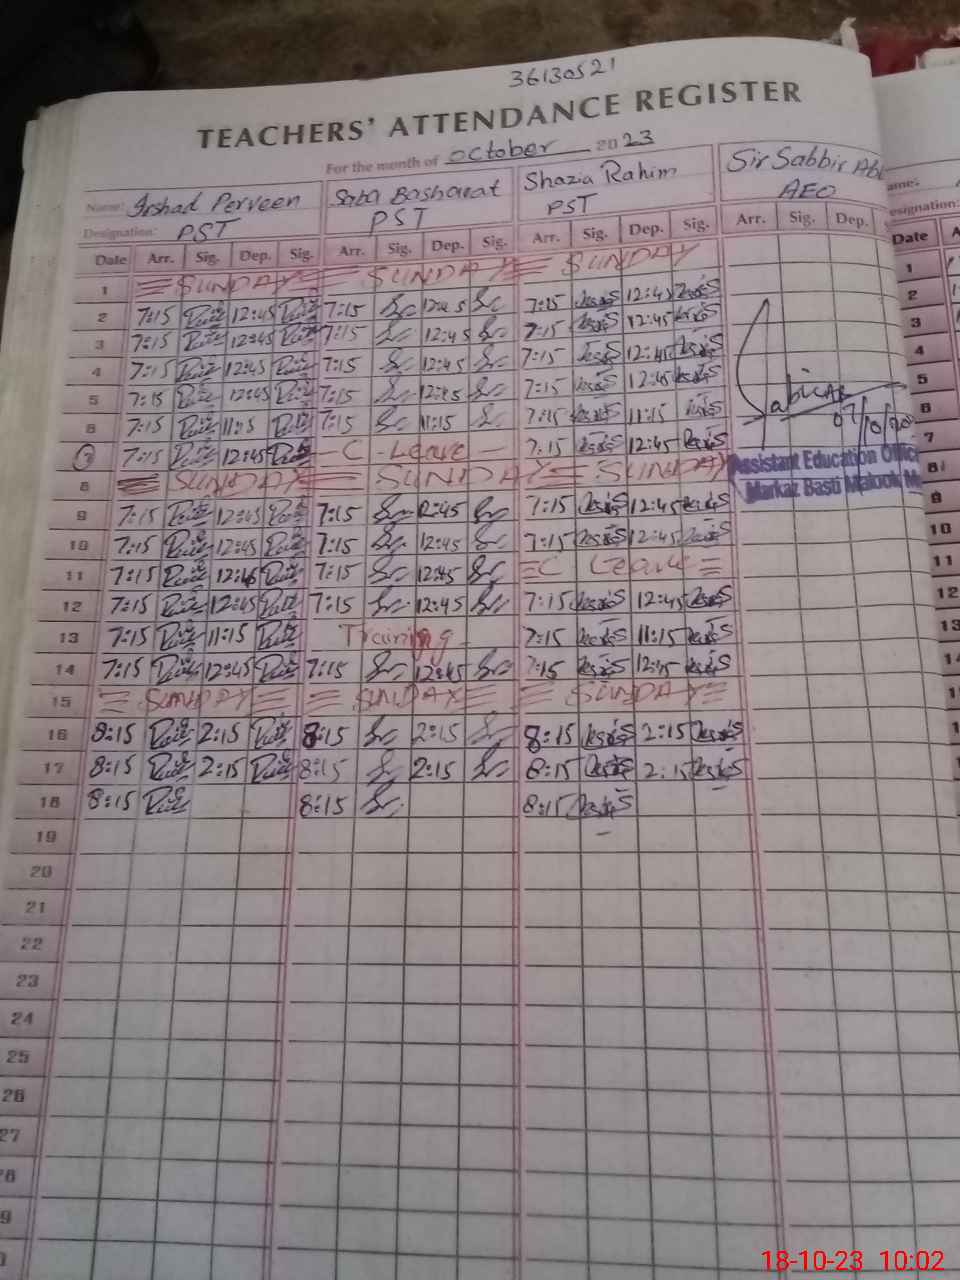 36130521
TEACHERS' ATTENDANCE REGISTER
For the month of October 2023
Name: Irshad Perveen Saba Basharat Shazia Rahim Sir Sabbir Ab
Designation: PST PST PST AEO
Date Arr. Sig. Dep. Sig. Arr. Sig. Dep. Sig. Arr. Sig. Dep. Sig. Arr. Sig. Dep.
1 SUNDAY SUNDAY SUNDAY
2 7:15 12:45 7:15 12:45 7:15 12:45
3 7:15 12:45 7:15 12:45 7:15 12:45
4 7:15 12:45 7:15 12:45 7:15 12:45
5 7:15 12:45 7:15 12:45 7:15 12:45
6 7:15 11:15 7:15 11:15 7:15 11:15
7 7:15 12:45 C - Leave 7:15 12:45
8 SUNDAY SUNDAY SUNDAY
9 7:15 12:45 7:15 12:45 7:15 12:45
10 7:15 12:45 7:15 12:45 7:15 12:45
11 7:15 12:45 7:15 12:45 C Leave
12 7:15 12:45 7:15 12:45 7:15 12:45
13 7:15 11:15 Training 7:15 11:15
14 7:15 12:45 7:15 12:45 7:15 12:45
15 SUNDAY SUNDAY SUNDAY
16 8:15 2:15 8:15 2:15 8:15 2:15
17 8:15 2:15 8:15 2:15 8:15 2:15
18 8:15 8:15 8:15
19
20
21
22
23
24
25
26
27
Assistant Education Offic
Markaz Basti Malook
ame:
esignation:
Date A
1
2
3
4
5
6
7
8
9
10
11
12
13
14
18-10-23 10:02